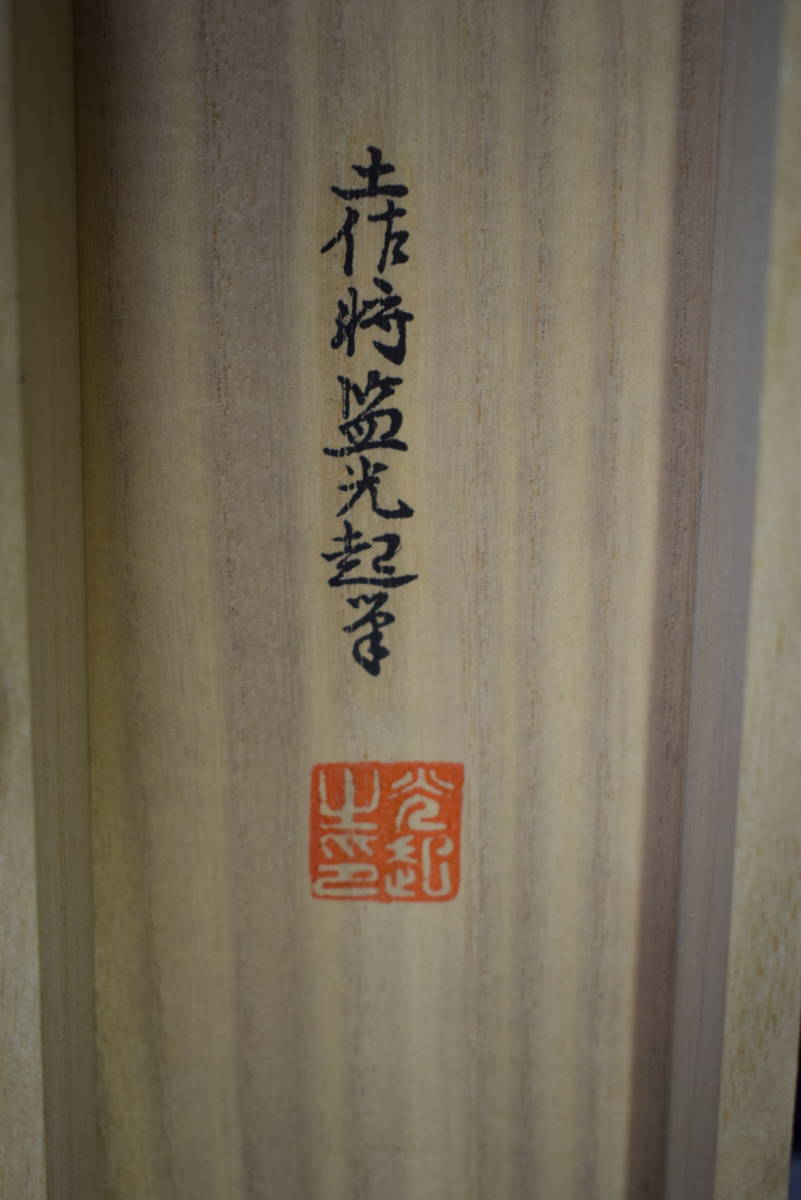 土佐将監光起筆
光起
之印